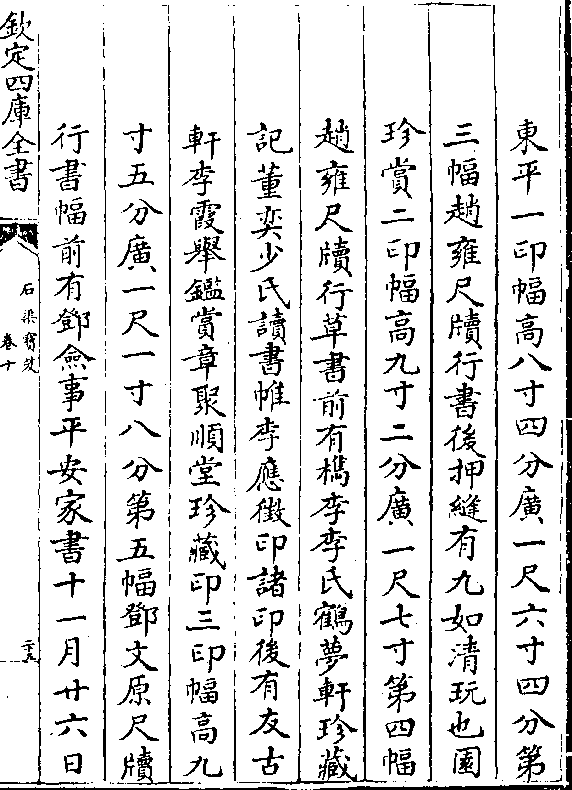 東平一印幅高八寸四分廣一尺六寸四分第
三幅趙雍尺牘行書後押縫有九如清玩也園
珍賞二印幅高九寸二分廣一尺七寸第四幅
趙雍尺牘行草書前有檇李李氏鶴夢軒珍藏
記董奕少氏讀書帷李應徵印諸印後有友古
軒李霞舉鑑賞章聚順堂珍藏印三印幅高九
寸五分廣一尺一寸八分第五幅鄧文原尺牘
行書幅前有鄧僉事平安家書十一月廿六日
欽定四庫全書
石渠寶笈
卷十
二十五